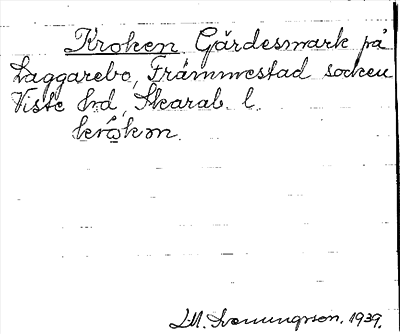 Kroken Gärdesmark på
Laggarebo, Främmestad socken
Viste hd, Skarab. l.
krökm.
1939.